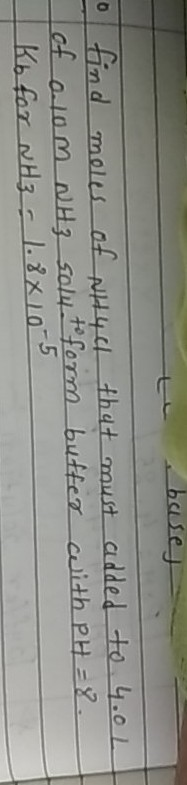 base)
find moles of NH4Cl that must added to 4.0 L
of 0.10M NH3 solu. to form buffer with PH = 8.
Kb for NH3 = 1.8 × 10-5